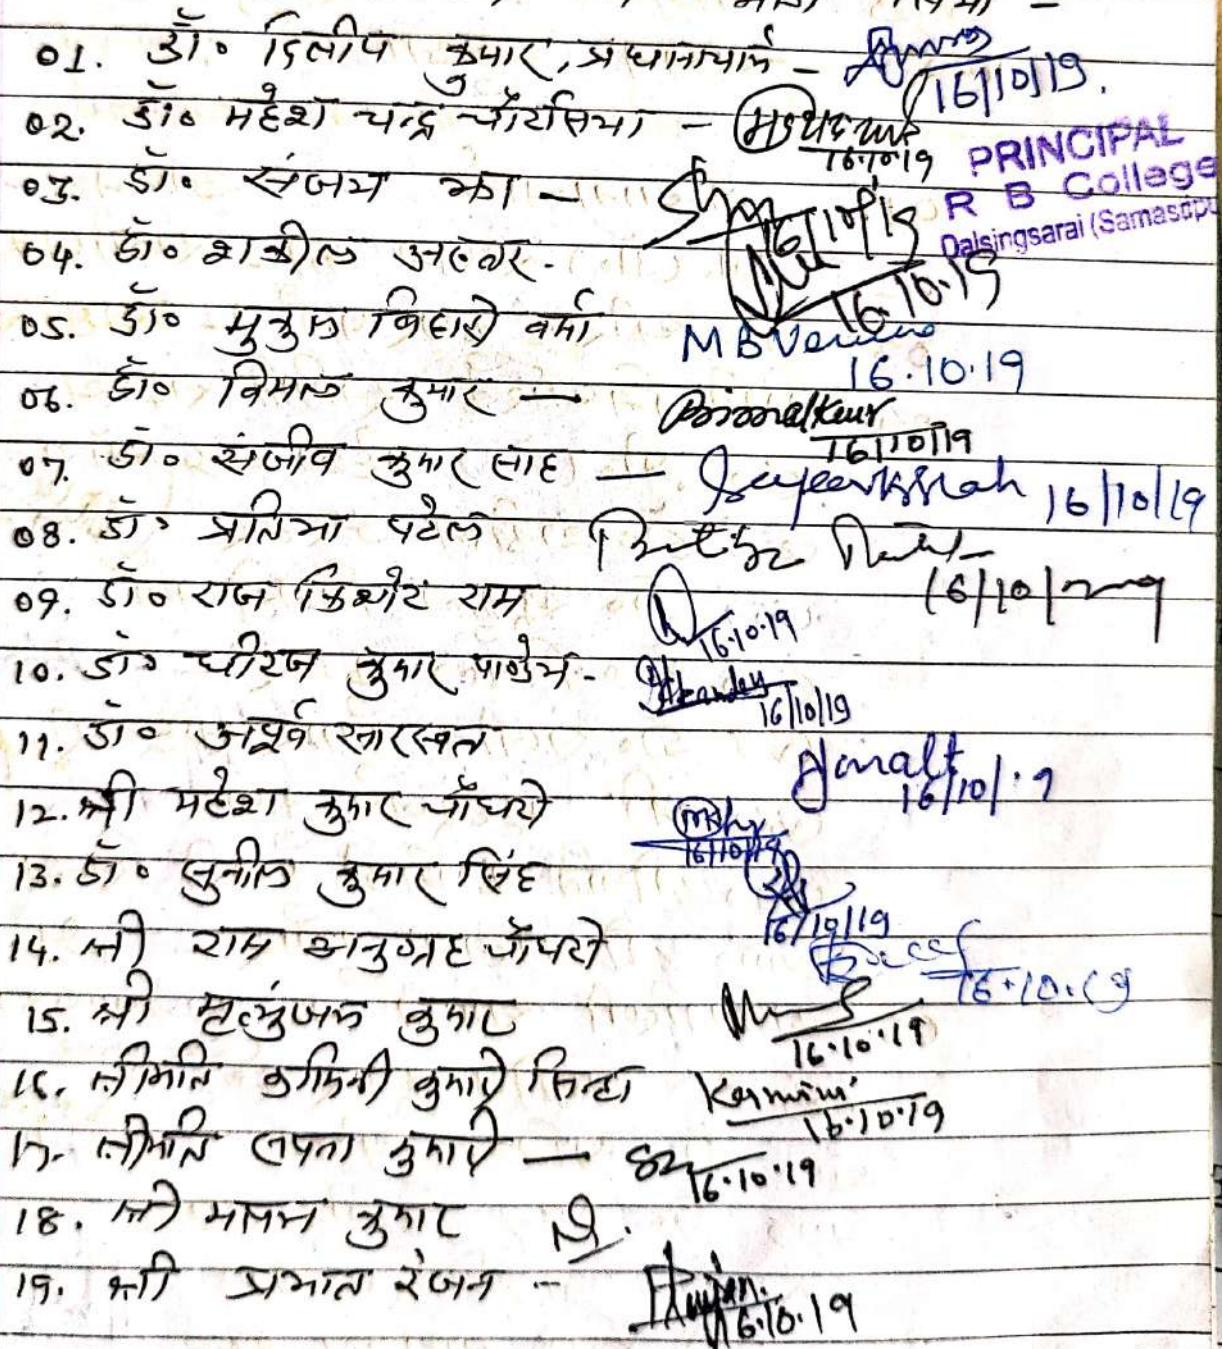 01. डॉ० दिलीप कुमार, प्रधानाचार्य –
16/10/19.
02. डॉ० महेश चन्द्र चौरसिया –
16.10.19
PRINCIPAL
R B College
Dalsingsarai (Samastipu
03. डॉ. संजय झा –
16/10/19
04. डॉ० शकील अख्तर.
16.10.19
05. डॉ० मुकुल बिहारी वर्मा
MBVerma
16.10.19
06. डॉ० विमल कुमार —
Bimal Kumar
16/10/19
07. डॉ० संजीव कुमार साह —
16/10/19
08. डॉ० प्रतिभा पटेल
16/10/2019
09. डॉ० राज किशोर राम
16.10.19
10. डॉ० धीरज कुमार पाण्डेय -
16/10/19
11. डॉ० अपूर्व सारस्वत
16/10/19
12. श्री महेश कुमार चौधरी
16/10/19
13. डॉ० सुनील कुमार सिंह
16/10/19
14. श्री राम अनुग्रह चौधरी
16.10.19
15. श्री मृत्युंजय कुमार
16.10.19
16. श्रीमति कामिनी कुमारी सिन्हा
Kamini
16.10.19
17. श्रीमति सपना कुमारी —
16.10.19
18. श्री कुमार
19. श्री प्रभात रंजन --
16.10.19